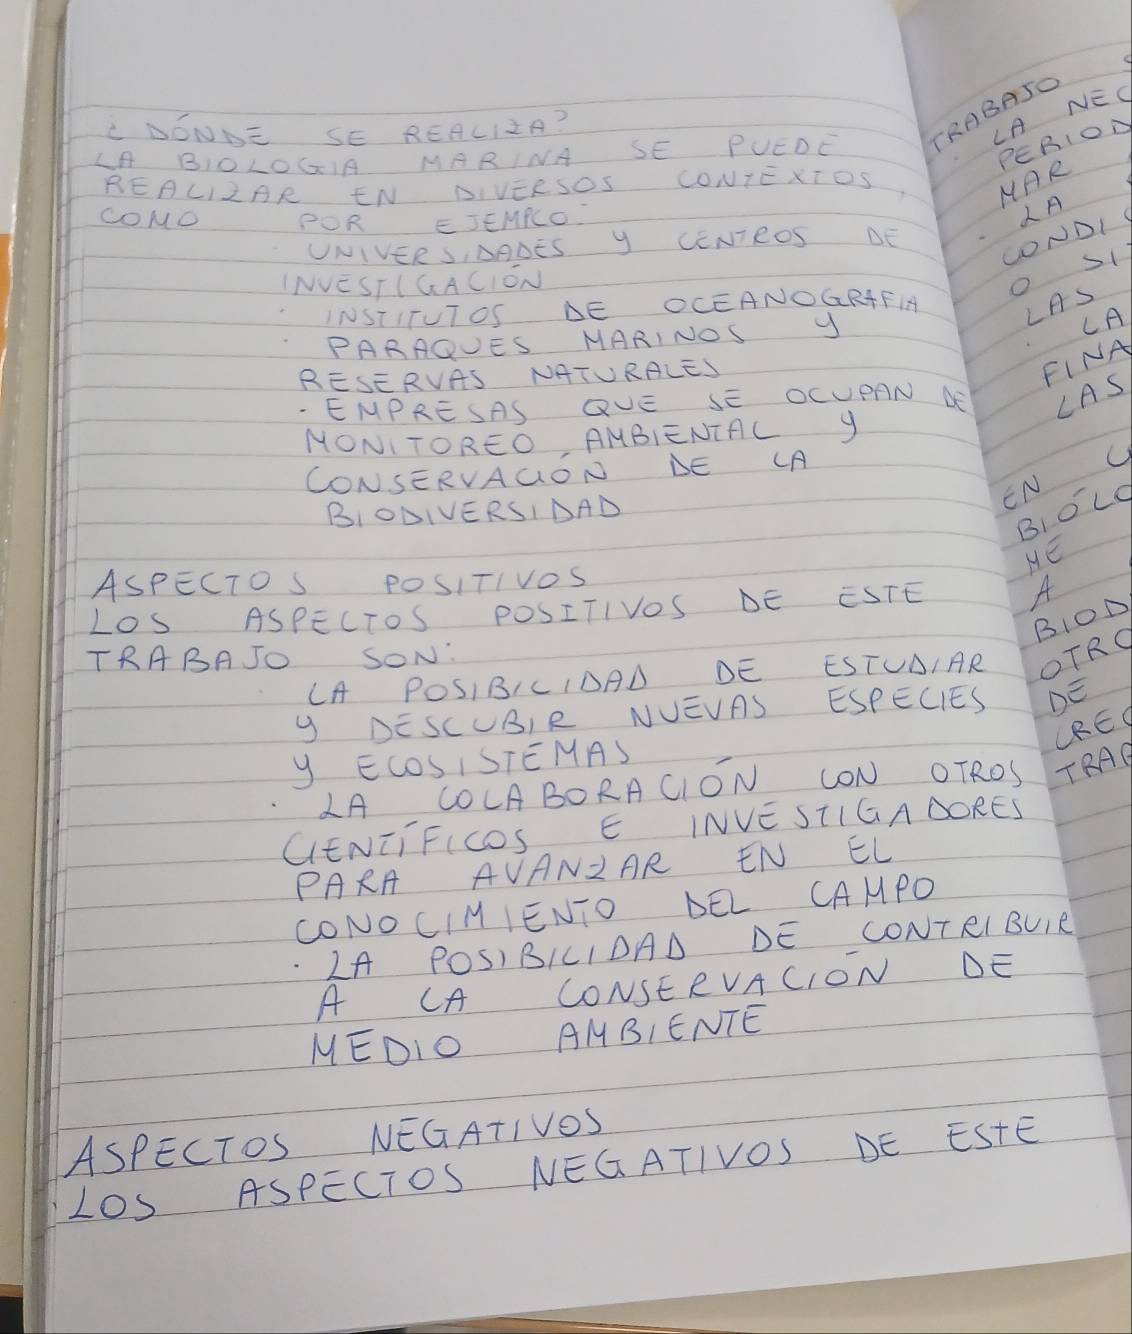 ¿ DÓNDE SE REALIZA?
LA BIOLOGIA MARINA SE PUEDE
REALIZAR EN DIVERSOS CONTEXTOS,
COMO POR EJEMPLO:
UNIVERSIDADES Y CENTROS DE
INVESTIGACIÓN
· INSTITUTOS DE OCEANOGRAFIA
· PARAQUES MARINOS Y
RESERVAS NATURALES
· EMPRESAS QUE SE OCUPAN DE
MONITOREO AMBIENTAL Y
CONSERVACIÓN DE LA
BIODIVERSIDAD
ASPECTOS POSITIVOS
LOS ASPECTOS POSITIVOS DE ESTE
TRABAJO SON:
LA POSIBILIDAD DE ESTUDIAR
Y DESCUBIR NUEVAS ESPECIES
Y ECOSISTEMAS
· LA COLABORACIÓN CON OTROS
CIENTÍFICOS E INVESTIGADORES
PARA AVANZAR EN EL
CONOCIMIENTO DEL CAMPO
· LA POSIBILIDAD DE CONTRIBUIR
A LA CONSERVACIÓN DE
MEDIO AMBIENTE
ASPECTOS NEGATIVOS
LOS ASPECTOS NEGATIVOS DE ESTE
TRABAJO
· LA NEC
PERIOD
MAR
· LA
CONDI
O SI
LAS
· LA
FINA
LAS
EN
BIÓLO
ME
A
BIOD
OTRO
DE
CREC
TRAB